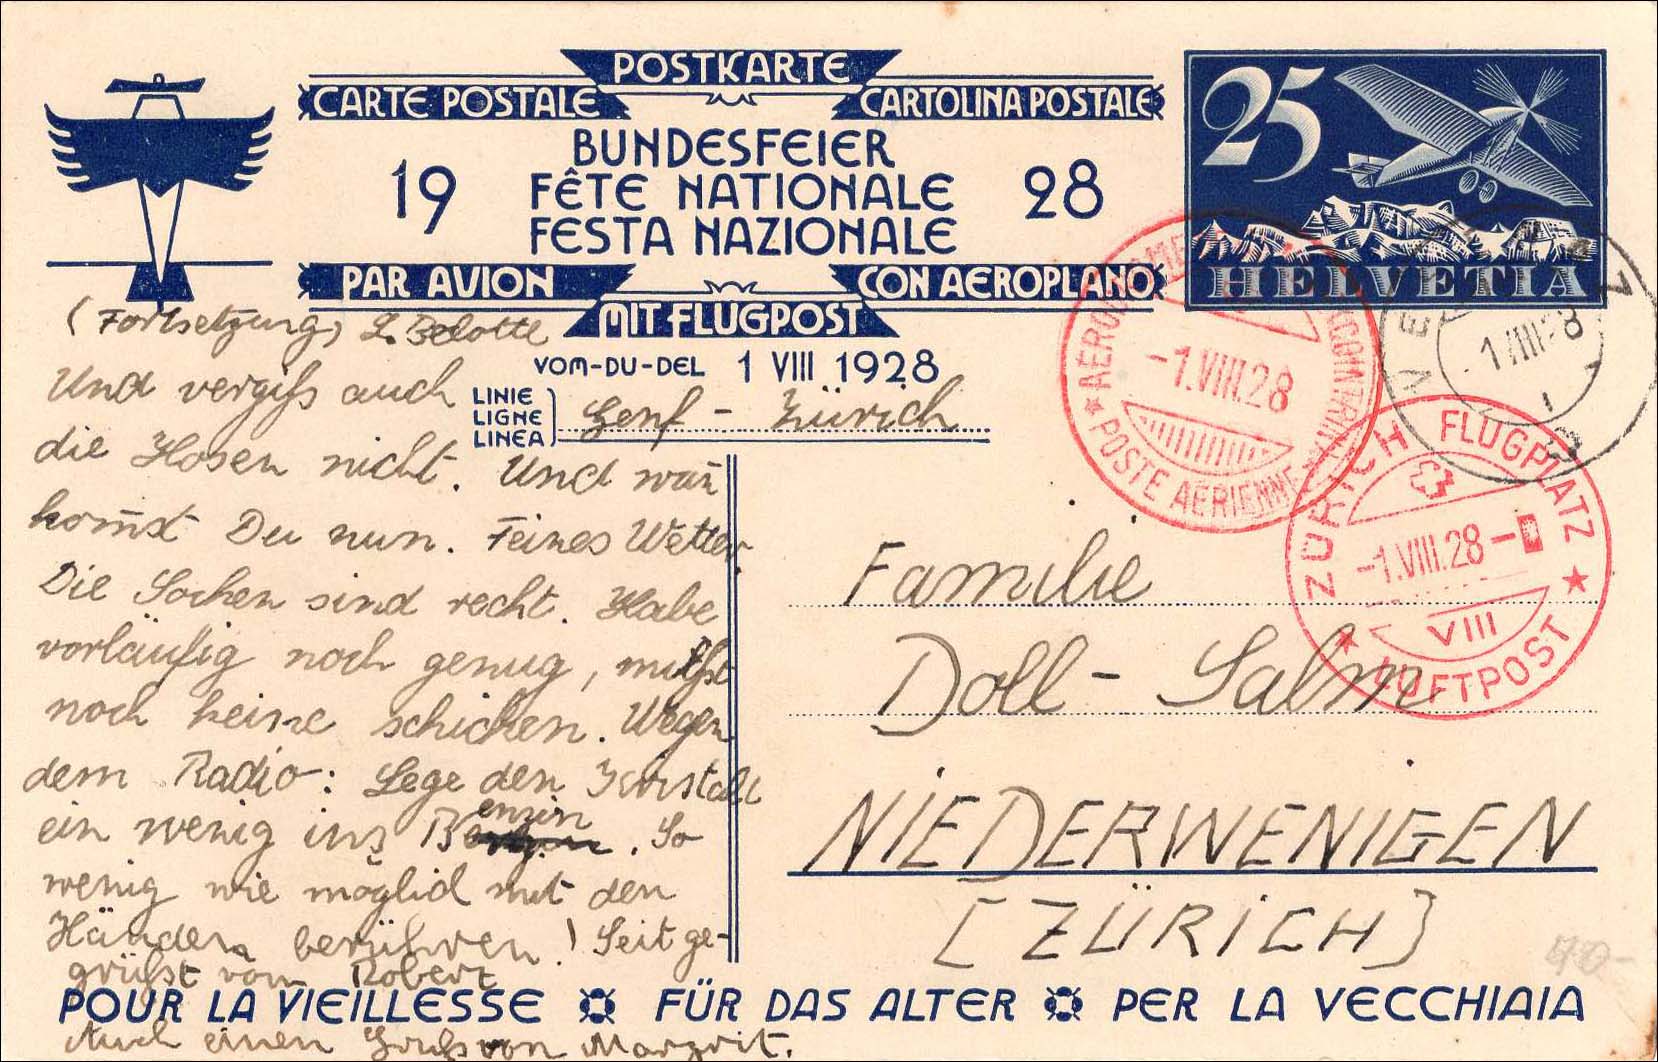 POSTKARTE
CARTE POSTALE
CARTOLINA POSTALE
BUNDESFEIER
19 FÊTE NATIONALE 28
FESTA NAZIONALE
PAR AVION
CON AEROPLANO
MIT FLUGPOST
VOM-DU-DEL 1 VIII 1928
LINIE
LIGNE
LINEA
Genf - Zürich
25
HELVETIA
POSTE AÉRIENNE
-1.VIII.28
ZÜRICH FLUGPLATZ
-1.VIII.28-
VIII
LUFTPOST
1 VIII 28
(Fortsetzung)
Und vergiß auch
die Hosen nicht. Und wan̄
kom̄st Du nun. Feines Wetter.
Die Sachen sind recht. Habe
vorläufig noch genug, mußt
noch keine schicken. Wegen
dem Radio: Lege den Kristall
ein wenig ins Benzin. So
wenig wie möglich mit den
Händen berühren! Seit ge-
grüßt vom Robert
Auch einen Gruß von Margrit.
Familie
Doll-Salm
NIEDERWENIGEN
[ZÜRICH]
POUR LA VIEILLESSE FÜR DAS ALTER PER LA VECCHIAIA